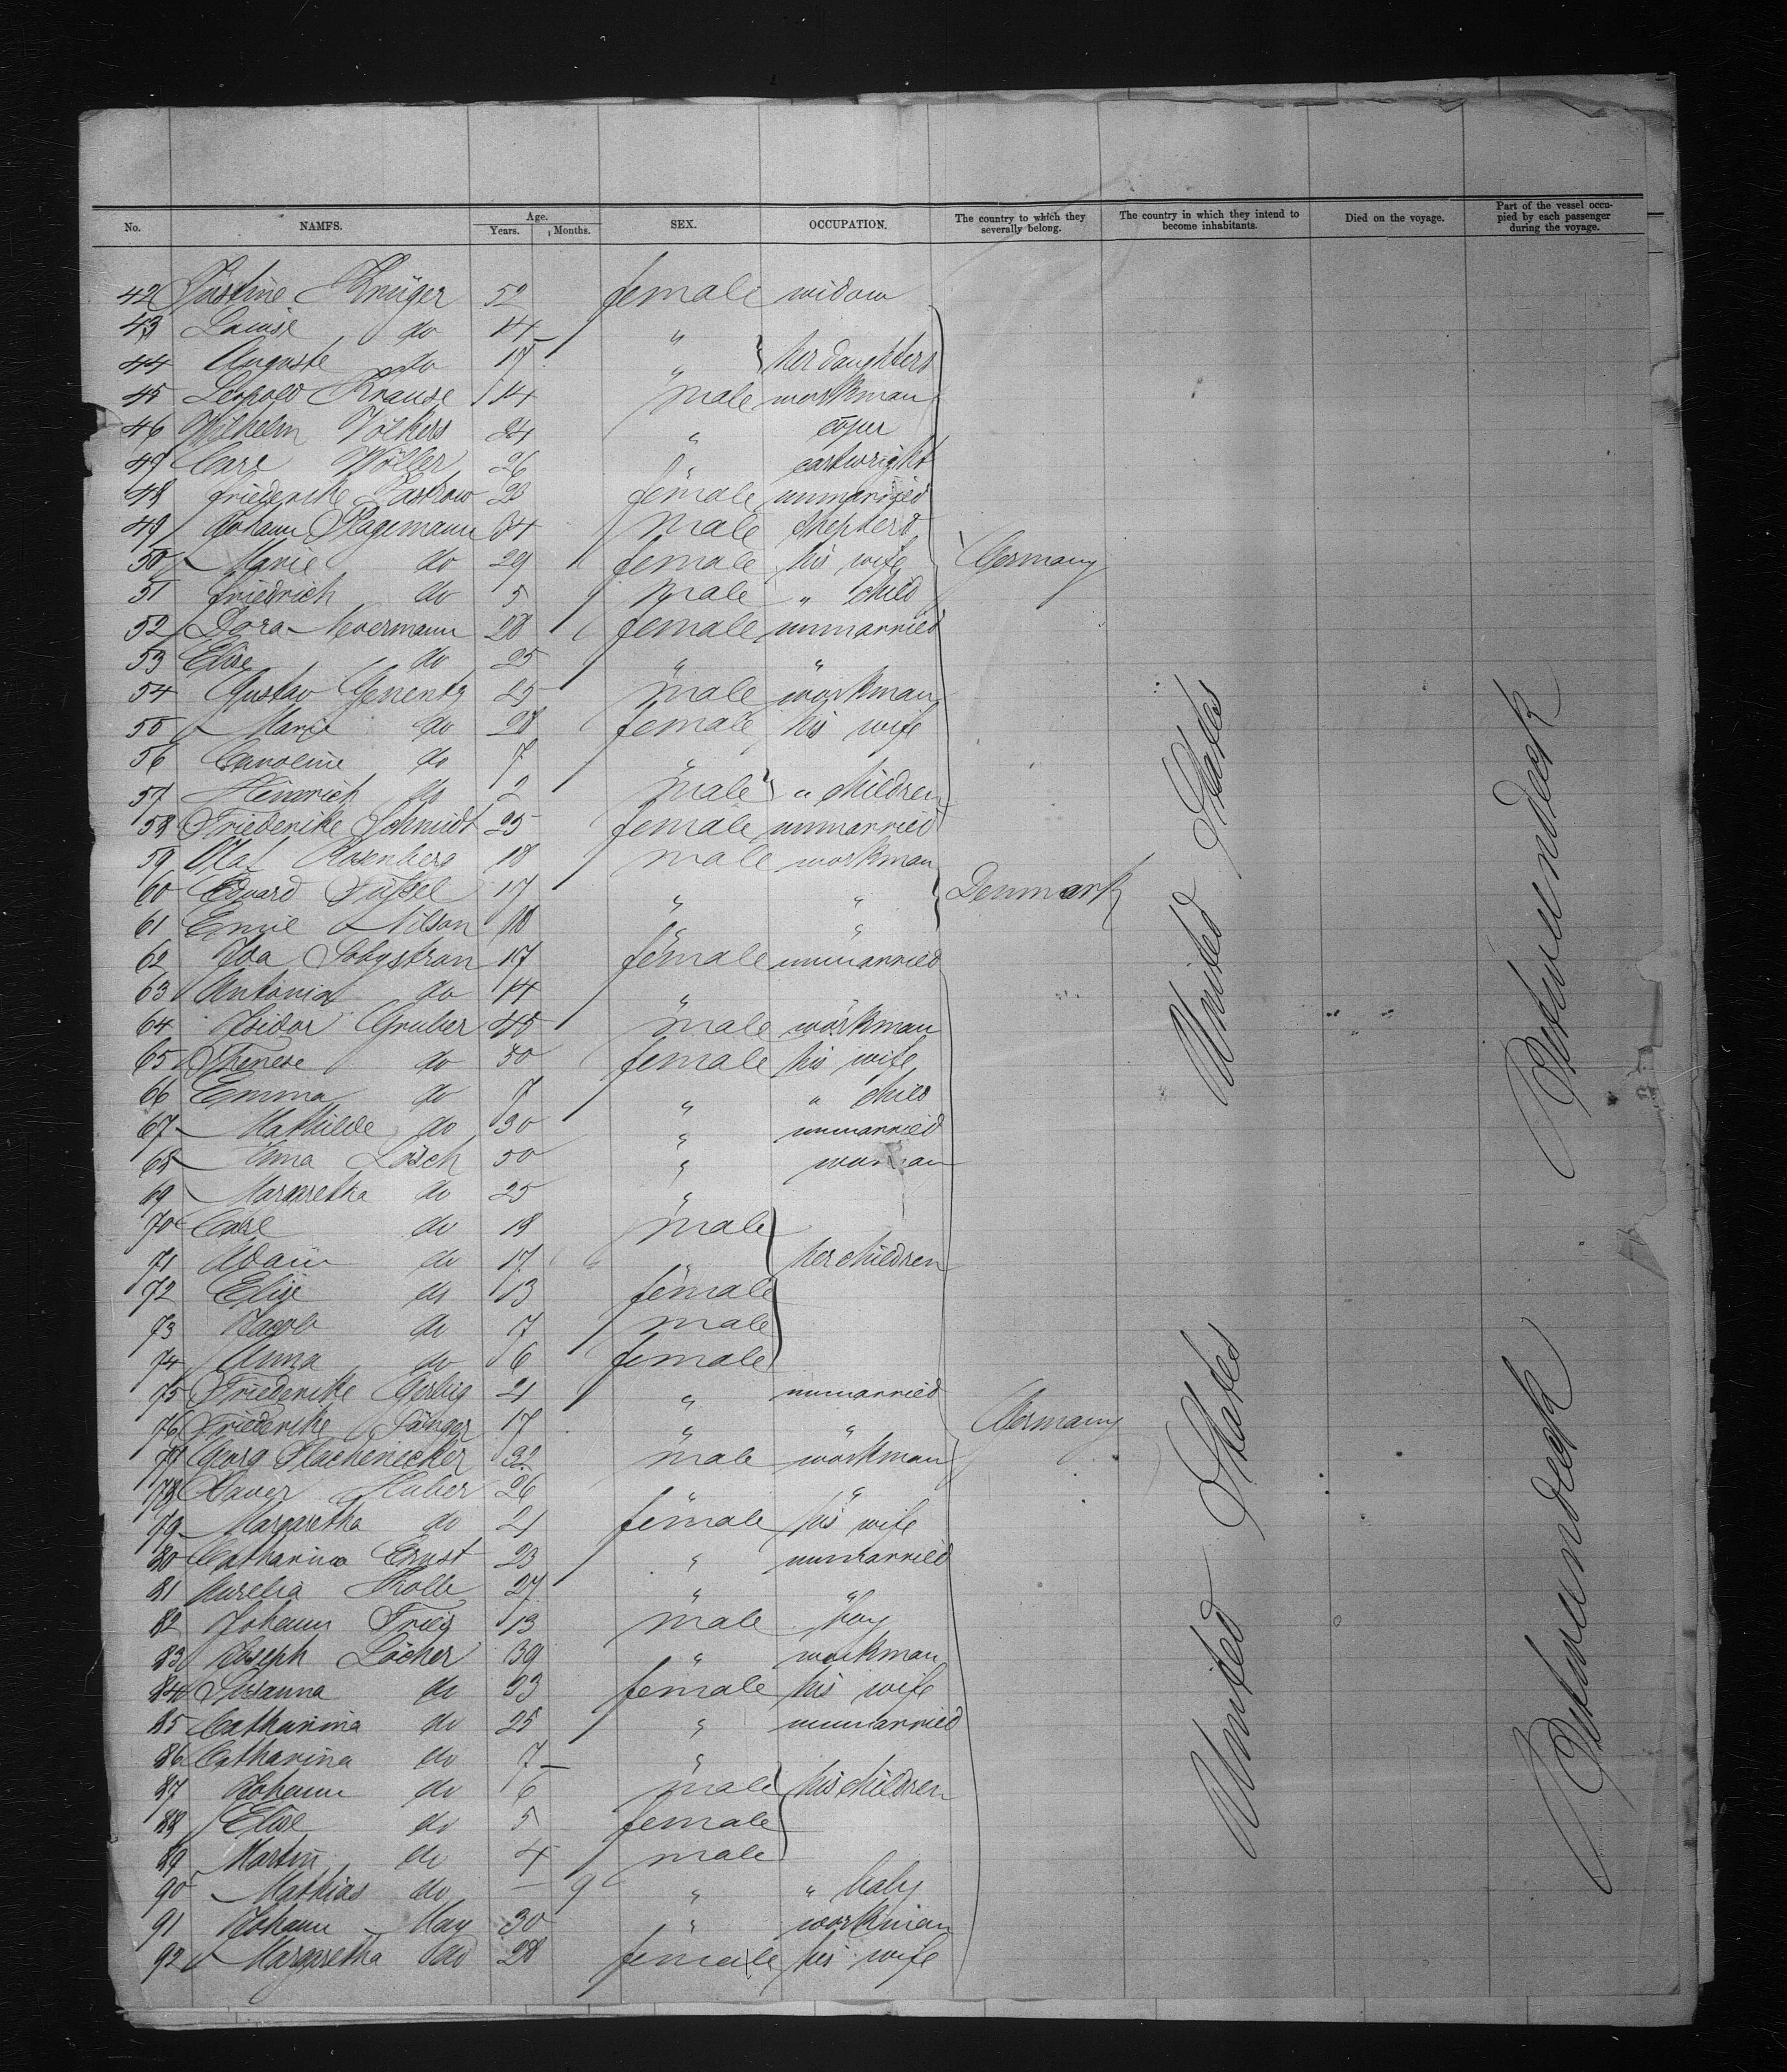 No. NAMES. Age. Years. Months. SEX. OCCUPATION. The country to which they severally belong. The country in which they intend to become inhabitants. Died on the voyage. Part of the vessel occupied by each passenger during the voyage.
42 Justine Krüger 52 female widow
43 Louise do 14 "
44 Auguste do 17 " her daughters
45 Leopold Krause 14 male workman
46 Wilhelm Völkers 24 " coper
47 Carl Wöller 26 " cartwright
48 Friederike Pastrow 23 female unmarried
49 Johann Plagemann 34 male shepherd
50 Marie do 29 female his wife Germany
51 Friedrich do 5 male " child
52 Dora Moermann 28 female unmarried
53 Elise do 25 " "
54 Gustav Genentz 25 male workman
55 Marie do 28 female his wife
56 Caroline do 7 "
57 Heinrich do 2 male " children
58 Friederike Schmidt 25 female unmarried
59 Olaf Rosenberg 18 male workman
60 Edvard 17 " " Denmark
61 Emil Nilson 18 " "
62 Ida 17 female unmarried
63 Antonia do 14 "
64 Isidor Gruber 45 male workman
65 Therese do 50 female his wife
66 Emma do 7 " " child
67 Mathilde do 30 " unmarried
68 Lösch 50 " woman
69 Margaretha do 25 "
70 Carl do 18 male
71 Adam do 17 " her children
72 Elise do 13 female
73 Jacob do 7 male
74 Anna do 6 female
75 Friederike Gerbig 21 " unmarried
76 Friederike Sänger 17 " " Germany
77 Georg Plachenecker 32 male workman
78 Xaver Huber 26 " "
79 Margaretha do 21 female his wife
80 Catharina Ernst 23 " unmarried
81 Aurelia Kolle 27 " "
82 Johann Fries 13 male boy
83 Joseph Löcher 39 " workman
84 Susanna do 33 female his wife
85 Catharina do 25 " unmarried
86 Catharina do 7 — "
87 Johann do 6 male his children
88 Elise do 5 female
89 Martin do 4 male
90 Mathias do — 9 " " baby
91 Johann May 30 " workman
92 Margaretha do 28 female his wife
United States
United States
Betweendeck
Betweendeck